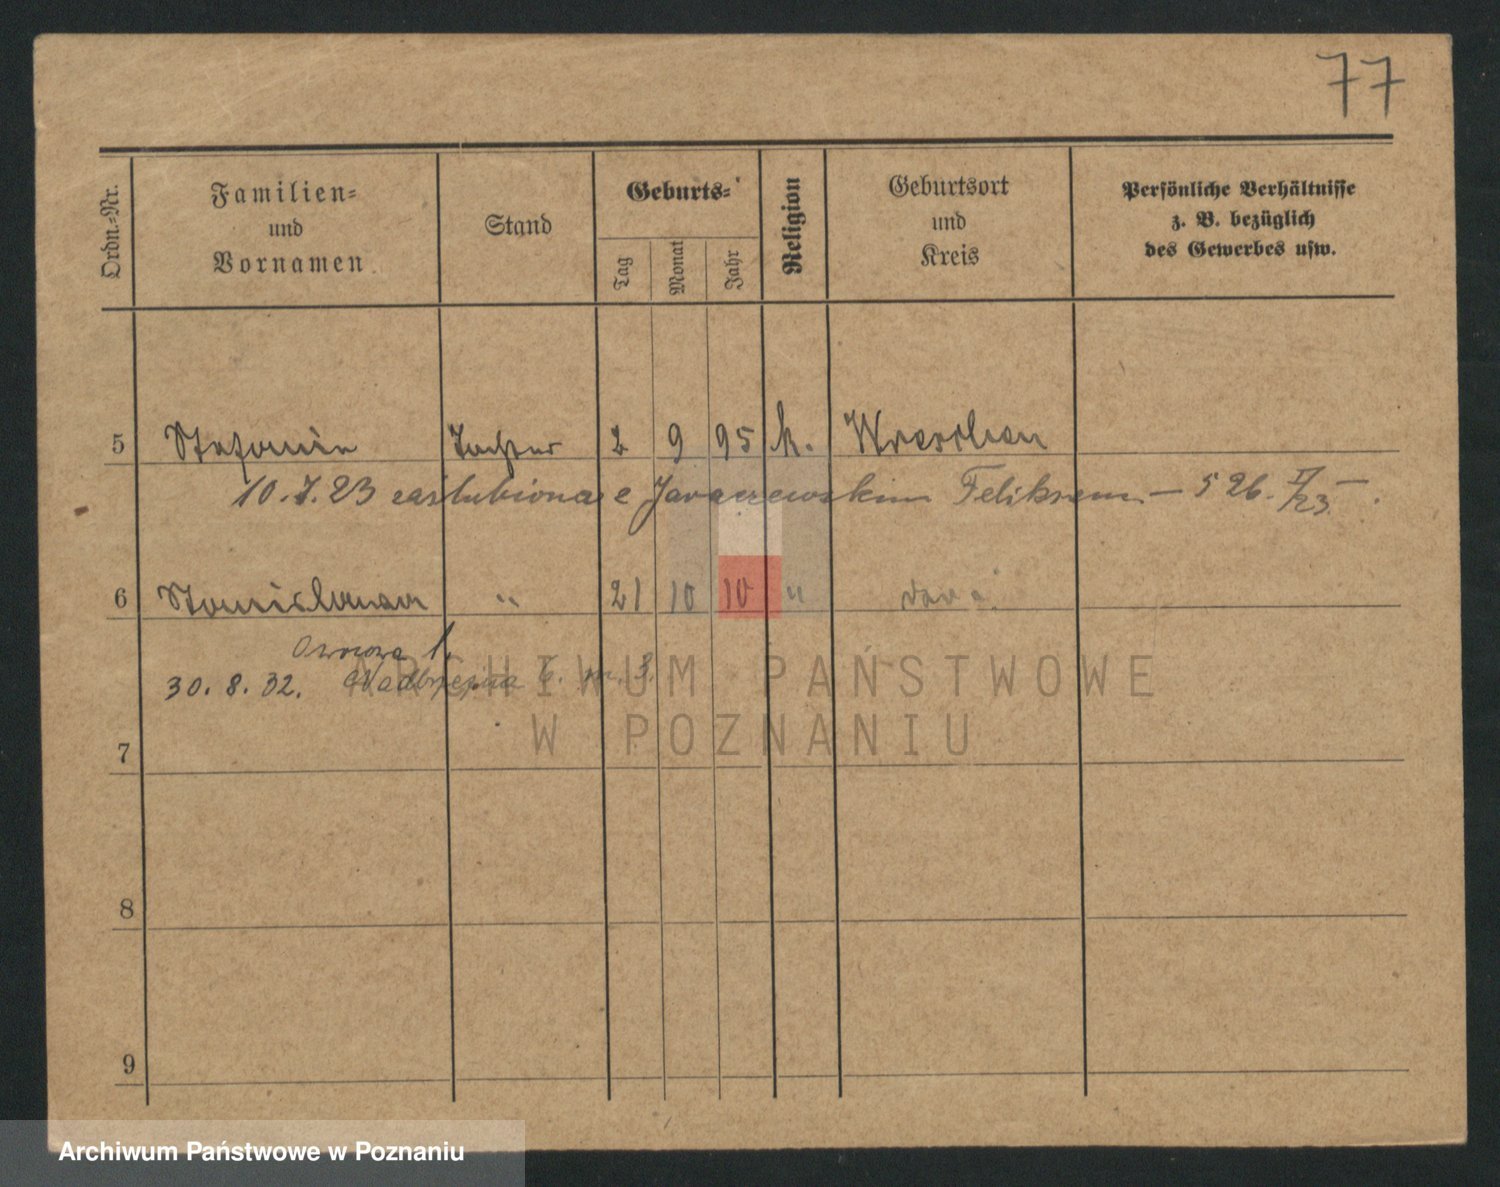 77
Ordn.-Nr. Familien- und Vornamen Stand Geburts- Tag Monat Jahr Religion Geburtsort und Kreis Persönliche Verhältnisse z. B. bezüglich des Gewerbes usw.
5 Stefania Tochter 2 9 95 k. Wreschen
10.7.23 zaślubiona z Jaraczewskim Feliksem – 526. II/23 –.
6 Stanislawa " 21 10 10 "
30.8.32.
ARCHIWUM PAŃSTWOWE
W POZNANIU
7
8
9
Archiwum Państwowe w Poznaniu